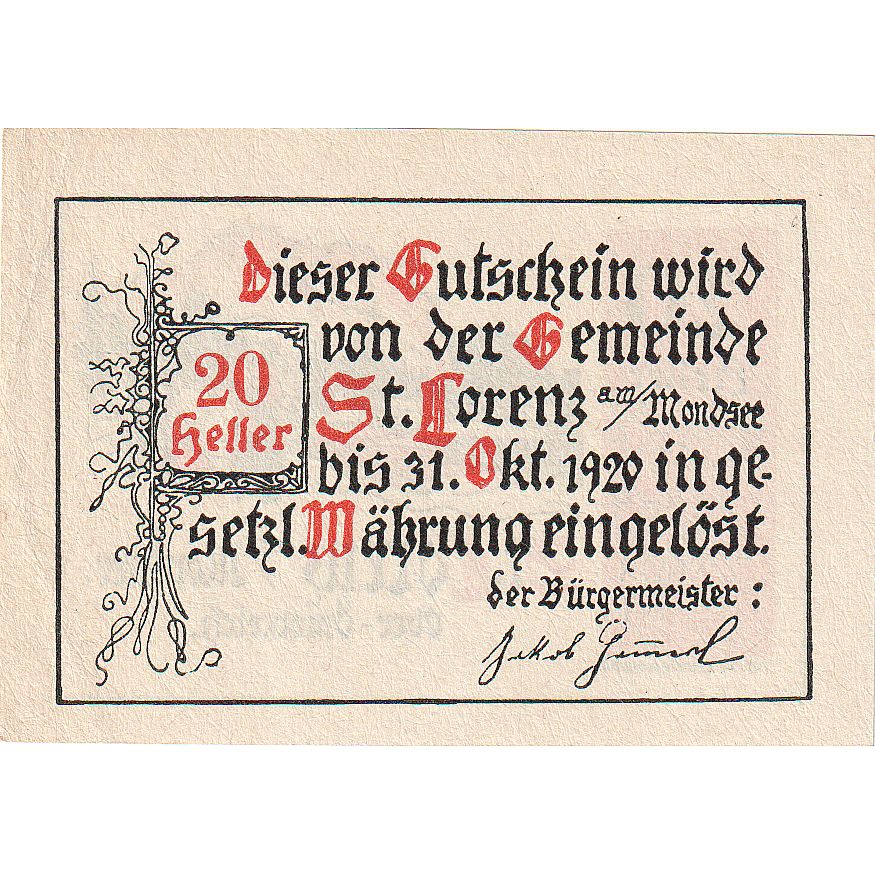 Dieser Gutschein wird
von der Gemeinde
20
Heller
St. Lorenz am/Mondsee
bis 31. Okt. 1920 in ge-
setzl. Währung eingelöst.
der Bürgermeister :
Jakob